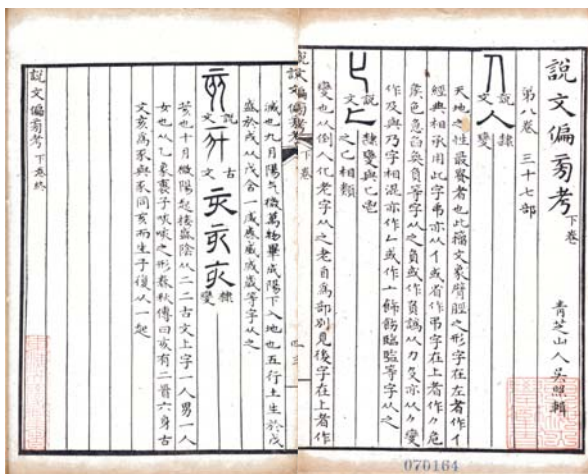 說文偏旁考 下卷
第八卷 三十七部 青芝山人吳照輯
說文 人 隸變
天地之性最貴者也此籀文象臂脛之形字在左者作亻
經典相承用此字弔亦从亻或省作弔字在上者作𠂊危
矦色急臽奐負等字从之負或作
作及與乃字相混亦作𠂉或作亠飾飭臨監等字从之
說文 隸變與匕鬯
之匕相類
變也从倒人化老字从之老自爲部別見後字在上者作
說文偏旁考 下卷
滅也九月陽气微萬物畢成陽下入地也五行土生於戊
盛於戌从戊含一威歲等字从之
說文 古文 亥 隸變
荄也十月微陽起接盛陰从二二古文上字一人男一人
女也从乙象褢子咳咳之形春秋傳曰亥有二首六身古
文亥爲豕與豕同亥而生子復从一起
說文偏旁考 下卷終
070164